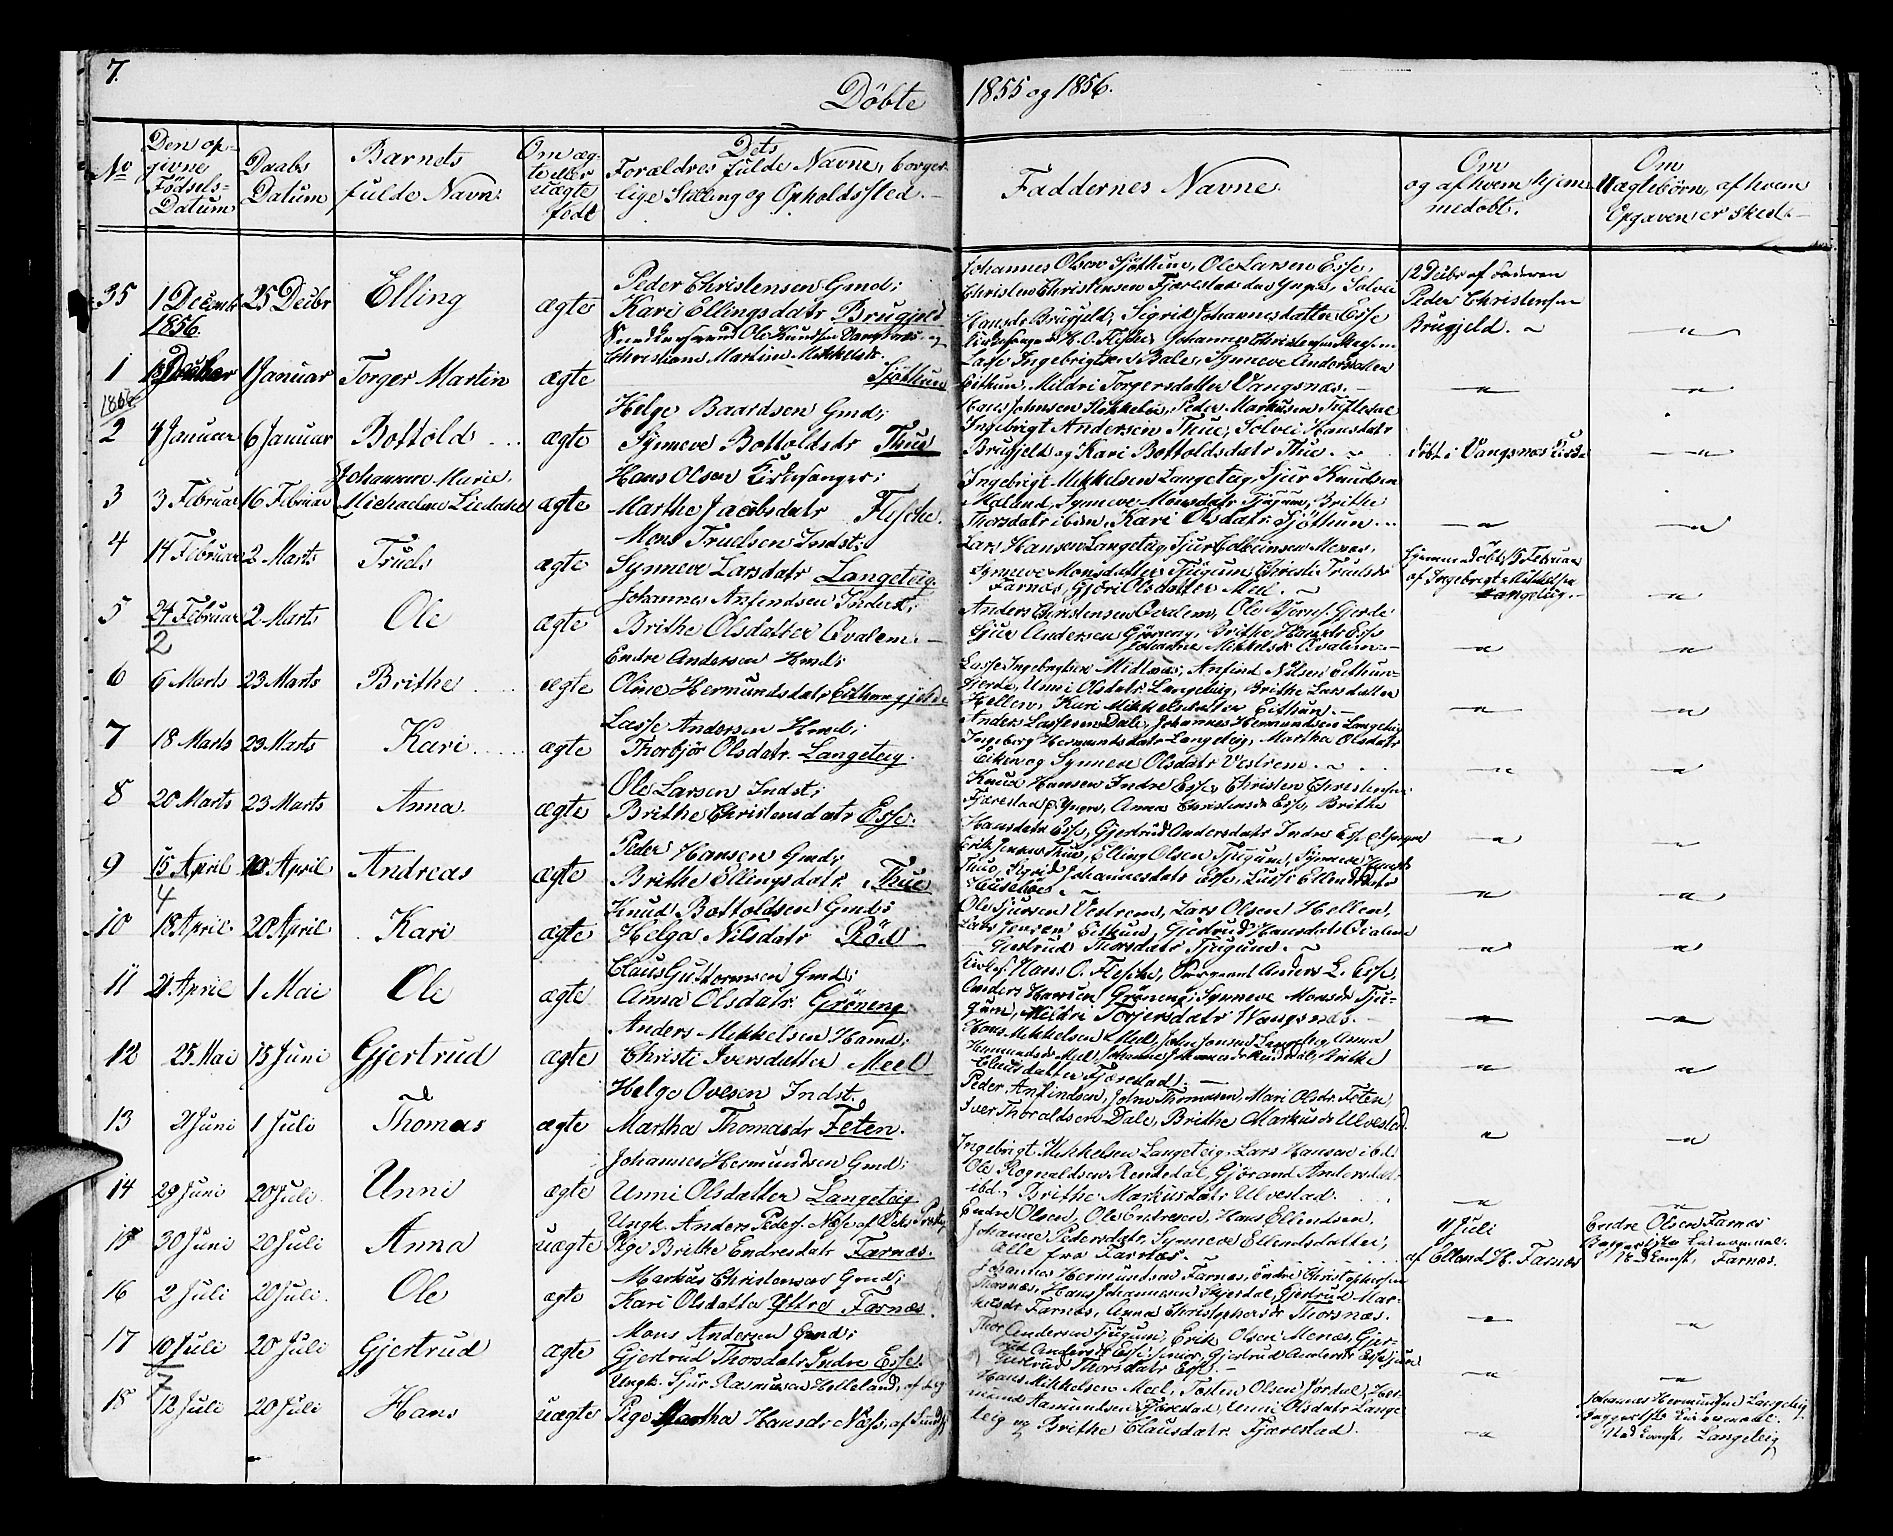 7.
Döbte 1855 og 1856.
No
Den op-
givne
Födsels-
Datum
Daabs
Datum
Barnets
fulde Navn.
Om æg-
te eller
uægte
födt
Dets
Foraldres fulde Navne, borger-
lige Stilling og Opholdssted.
Faddernes Navne
Om
og af hvem hjem-
medobt.
Om
Uægtebörn, af hvem
Opgaven er skedt.
35 1 Decembr 25 Decbr Elling ægte
1856
Peder Christensen Gmd;
Kari Ellingsdatr Brugjeld
Johannes Olsen Sjöthun, Ole Larsen Esse,
Christen Christensen Fjærestad den Yngre, Solvei
Hansdr Brugjeld, Sigrid Johannesdatter Esse
12 Decbr af Faderen
Peder Christensen
Brugjeld. ~
1 Januar Torger Martin ægte
Ole Knudsen Vangsnæs og
Christiane Martine Mikkelsdr.
Sjöthun
Lasse Ingebrigtsen Bale, Synneve Andersdatter
Eithun, Mildri Torgersdatter Vangsnæs.
2 4 Januar 6 Januar Bottold ægte
Helge Baardsen Gmd;
Synneve Bottoldsdtr Thue
Hans Johnsen Stokkebö, Peder Markusen Tuftedal
Ingebrigt Andersen Thue, Solvei Hansdatr
Brugjeld og Kari Bottoldsdatr Thue. ~
döbt i Vangsnæs Kirke
3 3 Februar 16 Februar Johanne Marie ægte
Hans Olsen Kirkesanger;
Marthe Jacobsdatr Flesche.
Ingebrigt Mikkelsen Langeteig, Sjur Knudsen
Möland, Synneve Monsdatr Tjugum, Brithe
Thorsdatr ibdm, Kari Olsdatr Sjöthun.
4 14 Februar 2 Marts Truls ægte
Mons Trudsen Indst;
Synneve Larsdatr Langeteig.
Lars Hansen Langeteig, Sjur Menæs,
Synneve Monsdatter Tjugum, Christi Trulsdr
Farnæs, Gjöri Olsdatter Meel. ~
hjemmedöbt 15 Februar
af Ingebrigt Mikkelsen
Langeteig.
5 24 Februar 2 Marts Ole ægte
2
Johannes Anfindsen Inderst;
Brithe Olsdatter Qvalem.
Anders Christensen Qvalem, Ole Gjerde
Sjur Andersen Gröneng, Brithe Hansdr Esse
Johanne Mikkelsdr Qvalem.
6 6 Marts 23 Marts Brithe ægte
Endre Andersen Hmd;
Oline Hermundsdatr Eithungjelde
Lasse Ingebrigtsen Midlnæs, Anfind Nilsen Eithun-
gjerde, Unni Olsdatr Langeteig, Brithe Larsdatter
Hellen, Kari Mikkelsdatter Eithun.
7 18 Marts 23 Marts Kari ægte
Lasse Andersen Hmd;
Thorbjör Olsdatr. Langeteig.
Anders Lassesen Dale, Johannes Hermundsen Langeteig
Ingeborg Hermundsdatr Langeteig, Martha Olsdatr
Eiken og Synneve Olsdatr Vestrem.
8 20 Marts 23 Marts Anna ægte
Ole Larsen Indst;
Brithe Christensdatr Esse.
Knud Hansen Indre Esse, Christen Christensen
Fjærestad d. Yngre, Anna Christensdr Esse, Brithe
Hansdatr Esse, Gjertrud Andersdatr Indre Esse
9 15 April 20 April Andreas ægte
4
Peder Hansen Gmd;
Brithe Ellingsdatr. Thue
Erik Jensen Thue, Elling Olsen Tjugum, Synneve Hansdr
Thue, Sigrid Johannesdatr Esse, Lusse Ellendsdatr
10 18 April 20 April Kari ægte
Knud Bottoldsen Gmd;
Helga Nilsdatr Röd
Ole Sjursen Vestrem, Lars Olsen Hellen,
Lars Jensen Eithun, Gjertrud Hansdatr Qvalem
Gjertrud Thorsdatr Tjugum. ~
11 21 April 1 Mai Ole ægte
Claus Guttormsen Gmd;
Anna Olsdatr. Gröneng
Kirkes. Hans O. Flesche, Sergeant Anders L. Esse
Anders Hansen Gröneng, Synneve Monsdr Tju-
gum, Mildri Torjersdatr Wangsnæs.
12 25 Mai 15 Juni Gjertrud ægte
Anders Mikkelsen Hmd;
Christi Iversdatter Meel
Hans Mikkelsen Meel, John Jonsen Langeteig, Anna
Hermundsdr Meel, Johanne Johannesdr Rendedal, Brithe
Clausdatter Fjærestad.
13 21 Juni 1 Juli Thomas ægte
Helge Ovesen Indst.
Martha Thomasdr Feten.
Peder Anfindsen, John Thomasen, Mari Olsdr Feten,
Iver Thoraldsen Dale, Brithe Markusdr Ulvestad.
14 29 Juni 20 Juli. Unni ægte
Johannes Hermundsen Gmd;
Unni Olsdatter Langeteig
Ingebrigt Mikkelsen Langeteig, Lars Hansen ibd.
Ole Rognaldsen Rendedal, Gjörand Andersdatr
ibd., Brithe Markusdatr Ulvestad.
15 30 Juni 20 Juli Anna uægte
Ungk. Anders Peders. Næse af Viks
Pige Brithe Endresdatr Farnæs.
Endre Olsen, Ole Endresen, Hans Ellendsen,
Johanne Pedersdatr, Synneve Ellendsdatter,
Alle fra Farnæs.
4 Juli
af Ellend H. Farnæs
Endre Olsen Farnæs
Farnæs.
16 2 Juli 20 Juli. Ole ægte
Markus Christensen Gmd;
Kari Olsdatter Yttre Farnæs.
Johannes Hermundsen Farnæs, Endre Christophersen
Thorsnæs, Hans Johannesen Kjerdal, Gjertrud Mar-
kusdr Farnæs, Anna Christophersdr Thorsnæs.
17 10 Juli 20 Juli Gjertrud ægte
7
Mons Andersen Gmd;
Gjertrud Thorsdatr Indre Esse
Thor Andersen Tjugum, Erik Olsen Menæs, Gjer-
trud Andersdr Esse senior, Gjertrud Andersdr Esse junior
Gjertrud Thorsdatr Esse.
18 12 Juli 20 Juli Hans uægte
Ungk. Sjur Rasmusen Helleland, af
Pige Martha Hansdr Næss, af
Hans Mikkelsen Meel, Tosten Olsen Jordal, Her-
mund Rasmundsen Fjærestad, Unni Olsdatr Lange-
teig og Brithe Clausdatr. Fjærestad.
Johannes Hermundsen Langeteig
Langeteig